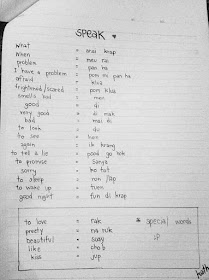 speak ♥
what = arai krap
when = meu rai
problem = pan ha
I have a problem = pom mi pan ha
afraid = klua
frightened/scared = pom klua
smells bad = men
good = di
very good = di mak
bad = mai di
to look = du
to see = hen
again = ik krang
to tell a lie = pood go hok
to promise = sanya
sorry = ko tot
to sleep = non lap
to wake up = tuen
good night = fun di krap
to love = rak * special words
pretty = na rak
beautiful = suay
like = chob
kiss = jup